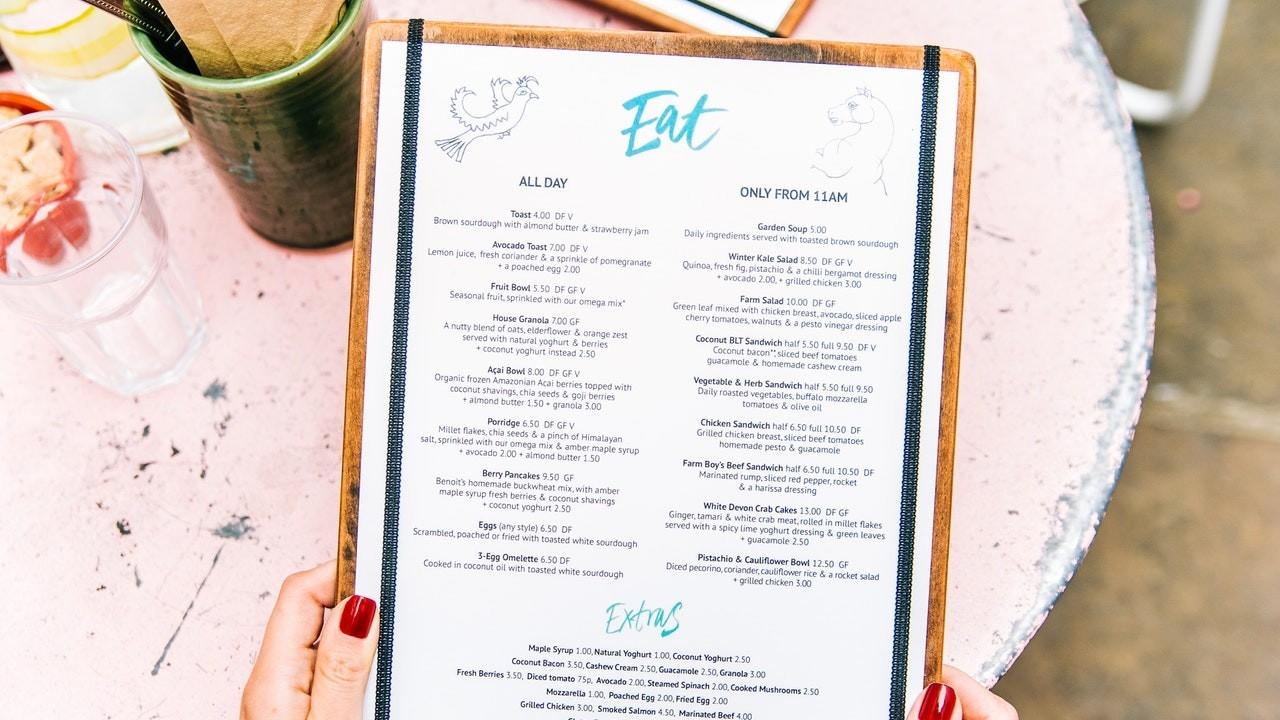 Eat
ALL DAY
Toast 4.00 DF V
Brown sourdough with almond butter & strawberry jam
Avocado Toast 7.00 DF V
Lemon juice, fresh coriander & a sprinkle of pomegranate
+ a poached egg 2.00
Fruit Bowl 5.50 DF GF V
Seasonal fruit, sprinkled with our omega mix*
House Granola 7.00 GF
A nutty blend of oats, elderflower & orange zest
served with natural yoghurt & berries
+ coconut yoghurt instead 2.50
Açai Bowl 8.00 DF GF V
Organic frozen Amazonian Acai berries topped with
coconut shavings, chia seeds & goji berries
+ almond butter 1.50 + granola 3.00
Porridge 6.50 DF GF V
Millet flakes, chia seeds & a pinch of Himalayan
salt, sprinkled with our omega mix & amber maple syrup
+ avocado 2.00 + almond butter 1.50
Berry Pancakes 9.50 GF
Benoit's homemade buckwheat mix, with amber
maple syrup fresh berries & coconut shavings
+ coconut yoghurt 2.50
Eggs (any style) 6.50 DF
Scrambled, poached or fried with toasted white sourdough
3-Egg Omelette 6.50 DF
Cooked in coconut oil with toasted white sourdough
ONLY FROM 11AM
Garden Soup 5.00
Daily ingredients served with toasted brown sourdough
Winter Kale Salad 8.50 DF GF V
Quinoa, fresh fig, pistachio & a chilli bergamot dressing
+ avocado 2.00, + grilled chicken 3.00
Farm Salad 10.00 DF GF
Green leaf mixed with chicken breast, avocado, sliced apple
cherry tomatoes, walnuts & a pesto vinegar dressing
Coconut BLT Sandwich half 5.50 full 9.50 DF V
Coconut bacon**, sliced beef tomatoes
guacamole & homemade cashew cream
Vegetable & Herb Sandwich half 5.50 full 9.50
Daily roasted vegetables, buffalo mozzarella
tomatoes & olive oil
Chicken Sandwich half 6.50 full 10.50 DF
Grilled chicken breast, sliced beef tomatoes
homemade pesto & guacamole
Farm Boy's Beef Sandwich half 6.50 full 10.50 DF
Marinated rump, sliced red pepper, rocket
& a harissa dressing
White Devon Crab Cakes 13.00 DF GF
Ginger, tamari & white crab meat, rolled in millet flakes
served with a spicy lime yoghurt dressing & green leaves
+ guacamole 2.50
Pistachio & Cauliflower Bowl 12.50 GF
Diced pecorino, coriander, cauliflower rice & a rocket salad
+ grilled chicken 3.00
Extras
Maple Syrup 1.00, Natural Yoghurt 1.00, Coconut Yoghurt 2.50
Coconut Bacon 3.50, Cashew Cream 2.50, Guacamole 2.50, Granola 3.00
Fresh Berries 3.50, Diced tomato 75p, Avocado 2.00, Steamed Spinach 2.00, Cooked Mushrooms 2.50
Mozzarella 1.00, Poached Egg 2.00, Fried Egg 2.00
Grilled Chicken 3.00, Smoked Salmon 4.50, Marinated Beef 4.00